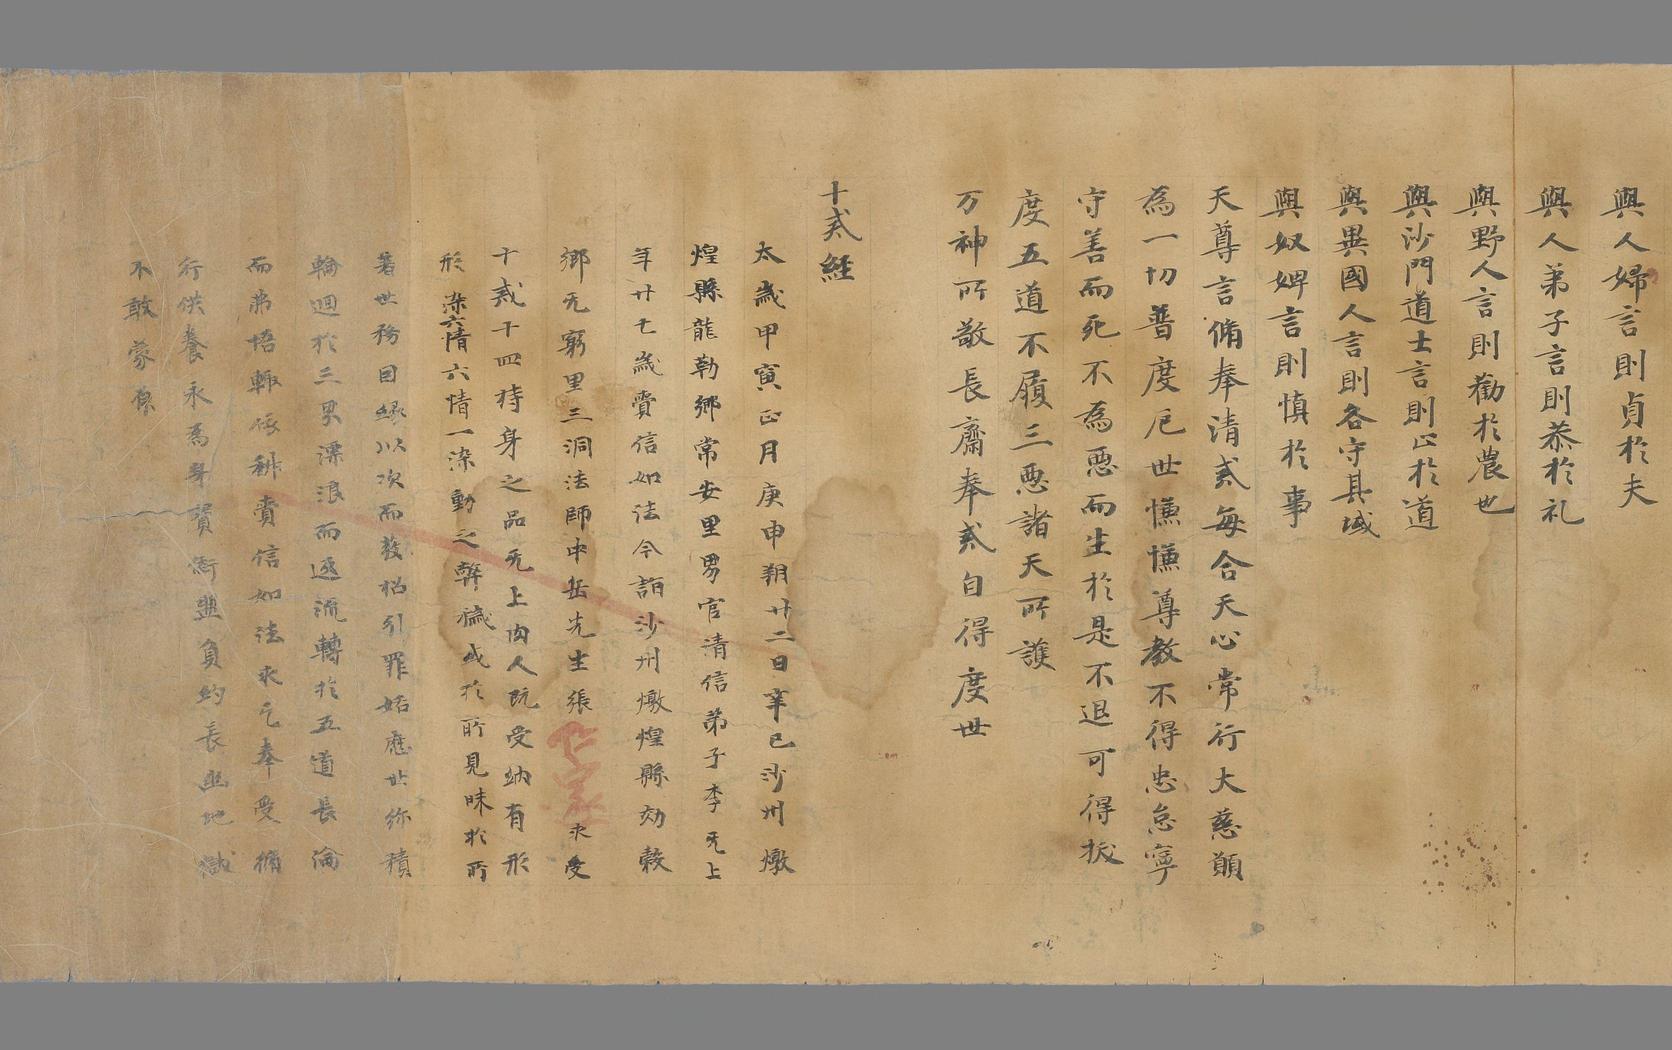 與人婦言則貞於夫
與人弟子言則恭於礼
與野人言則勸於農也
與沙門道士言則止於道
與異國人言則各守其域
與奴婢言則慎於事
天尊言脩奉清戒每合天心常行大慈願
為一切普度厄世慊慊尊教不得忠怠寧
守善而死不為惡而生於是不退可得拔
度五道不履三惡諸天所護
万神所敬長齋奉戒自得度世
十戒経
太歲甲寅正月庚申朔廿二日辛巳沙州燉
煌縣龍勒鄉常安里男官清信弟子李无上
年廿七歲賷信如法今詣沙州燉煌縣効穀
鄉无窮里三洞法師中岳先生張 求受
十戒十四持身之品无上肉人既受納有形
形染六情六情一染動之弊穢或於所見昧於所
著世務因緣以次而發招引罪垢應世弥積
輪迴於三界漂浪而逐流轉於五道長淪
而弗悟輙依科賷信如法求乞奉受脩
行供養永為身寶 盟負約長幽地獄
不敢蒙原